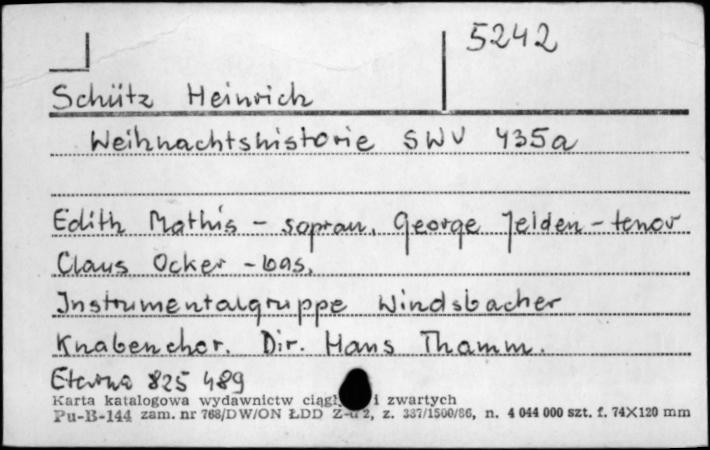 5242
Schütz Heinrich
Weihnachtshistorie SWV 435a
Edith Mathis - sopran, George Jelden - tenor
Claus Ocker - bas,
Instrumentalgruppe Windsbacher
Knabenchor. Dir. Hans Thamm.
Eterna 825 489
Karta katalogowa wydawnictw i zwartych
Pu-B-144 zam. nr 768/DW/ON ŁDD z. 337/1500/86, n. 4 044 000 szt. f. 74X120 mm